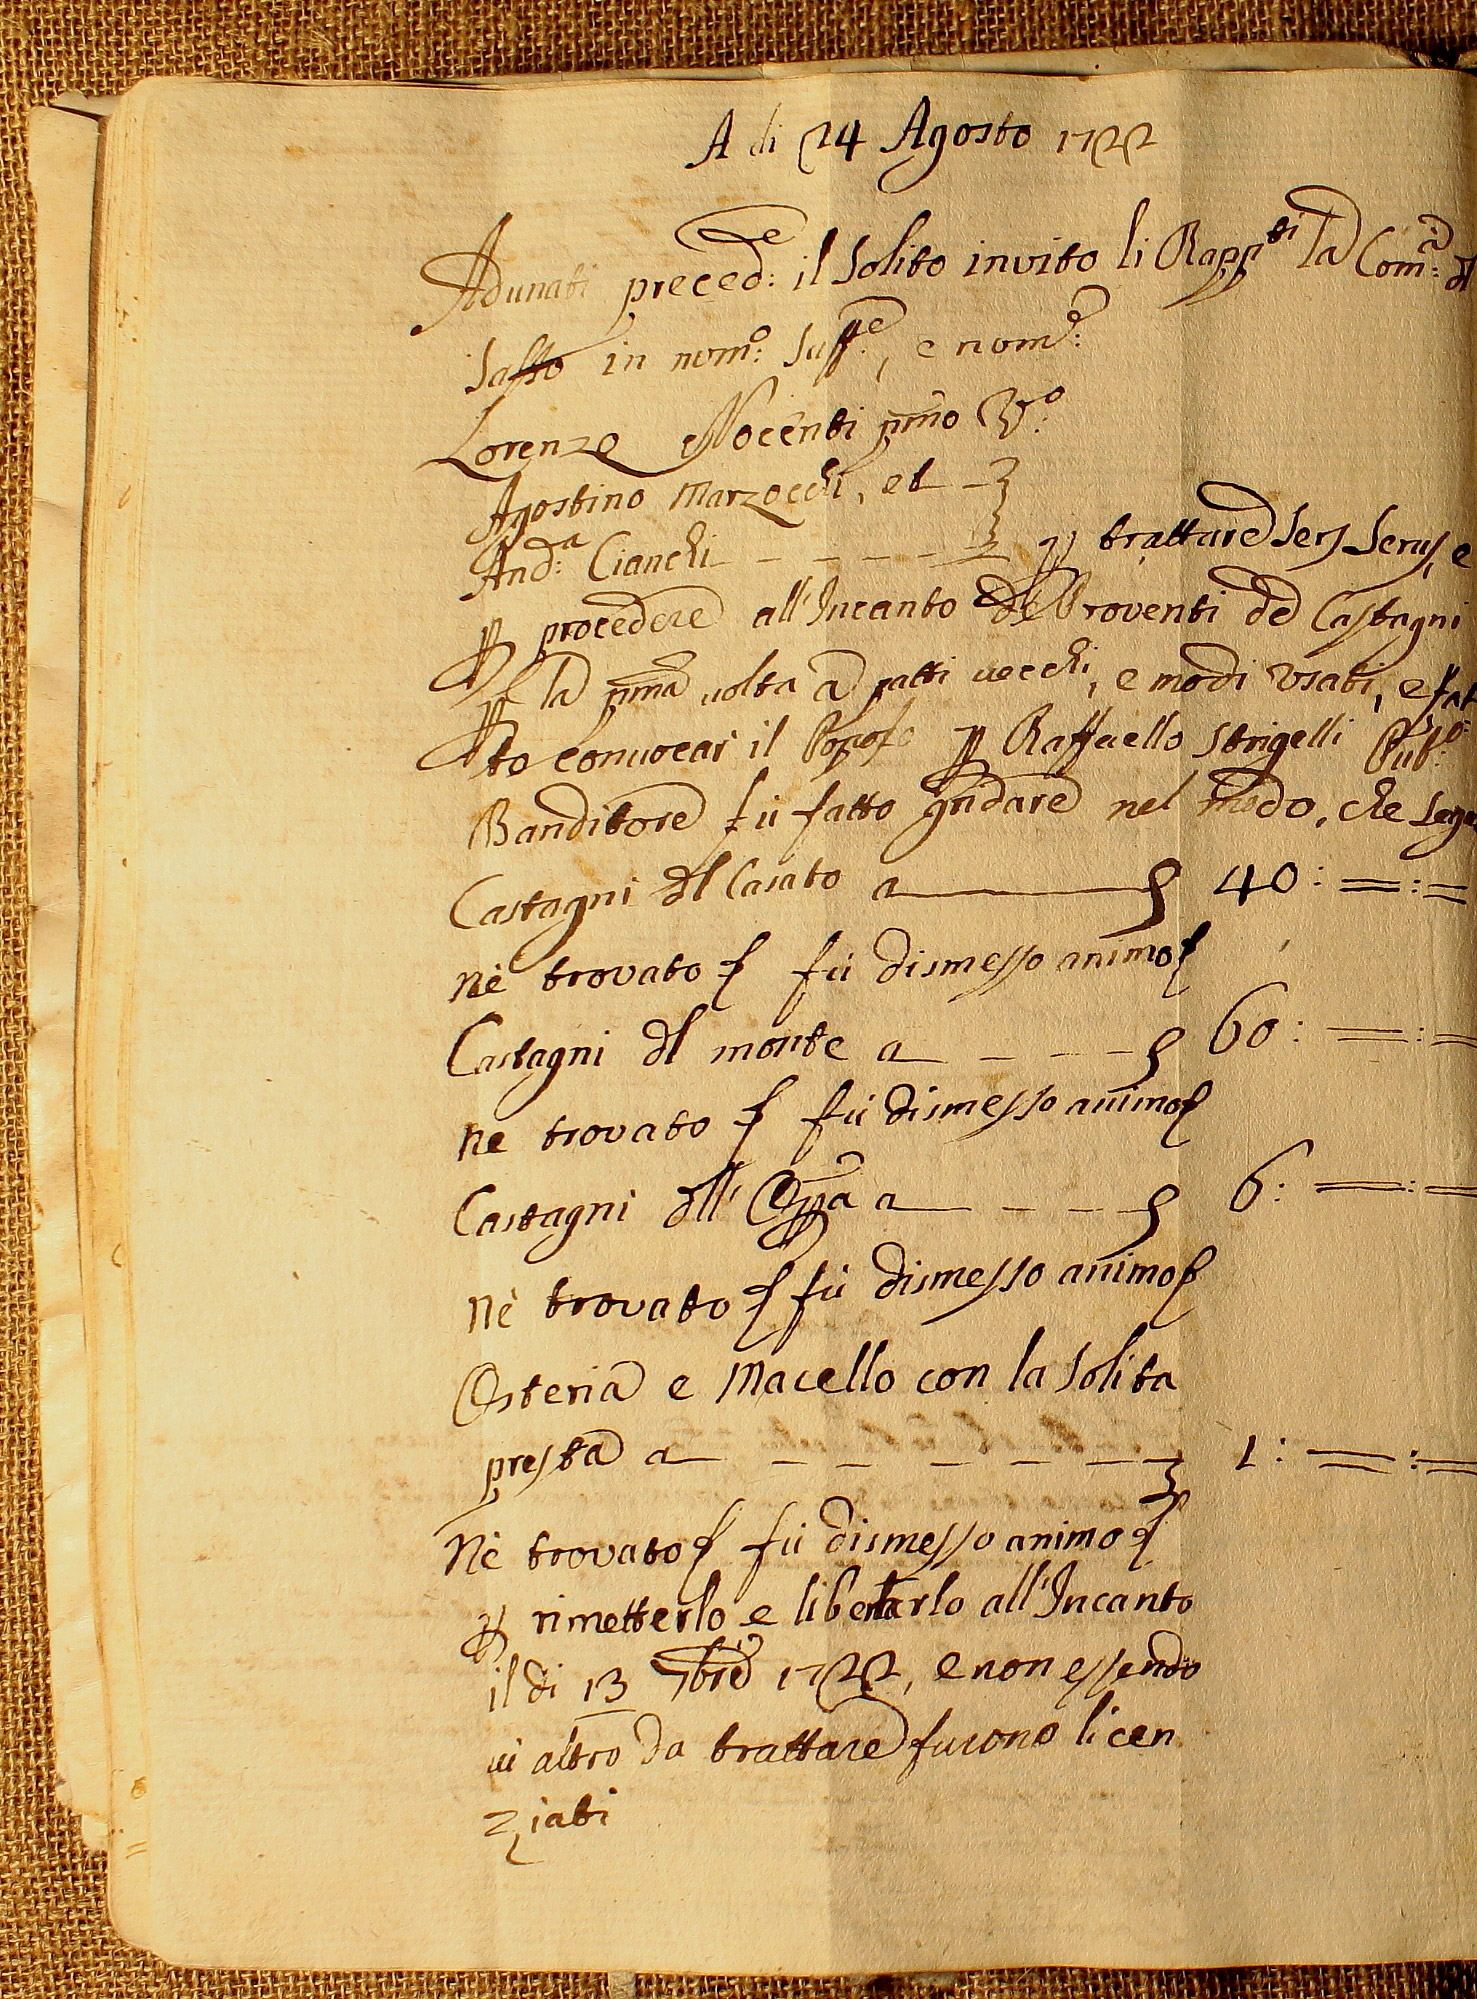 A di 24 Agosto 1722
Adunati preced:e il Solito invito li Rapp:ti la Com:à dl
Sasso in num:o Suff:e, e nom:e
Lorenzo Nocenti pmo
Agostino Marzocchi, et
And:a Cianchi - - - - - p trattare Serv Serv, e
p procedere all'Incanto de Proventi de Castagni
p la pma volta a patti vecchi, e modi usati, e fat
to convocar il Popolo p Raffaello Strigelli Pub:o
Banditore fù fatto gridare nel modo, che Segue
Castagni dl Casato a 40: =:=
Nè trovato fù dismesso animo
Castagni dl monte a - - - - 60: =:=
Ne trovato fù dismesso animo
Castagni dll' Oppa a - - - 6: =:=
Nè trovato fù dismesso animo
Osteria e Macello con la Solita
presta a - - - - - - 1: =:=
Nè trovato fù dismesso animo
p rimetterlo e libertarlo all'Incanto
il di 13 7bre 1722, e non essendo
vi altro da trattare furono licen
ziati